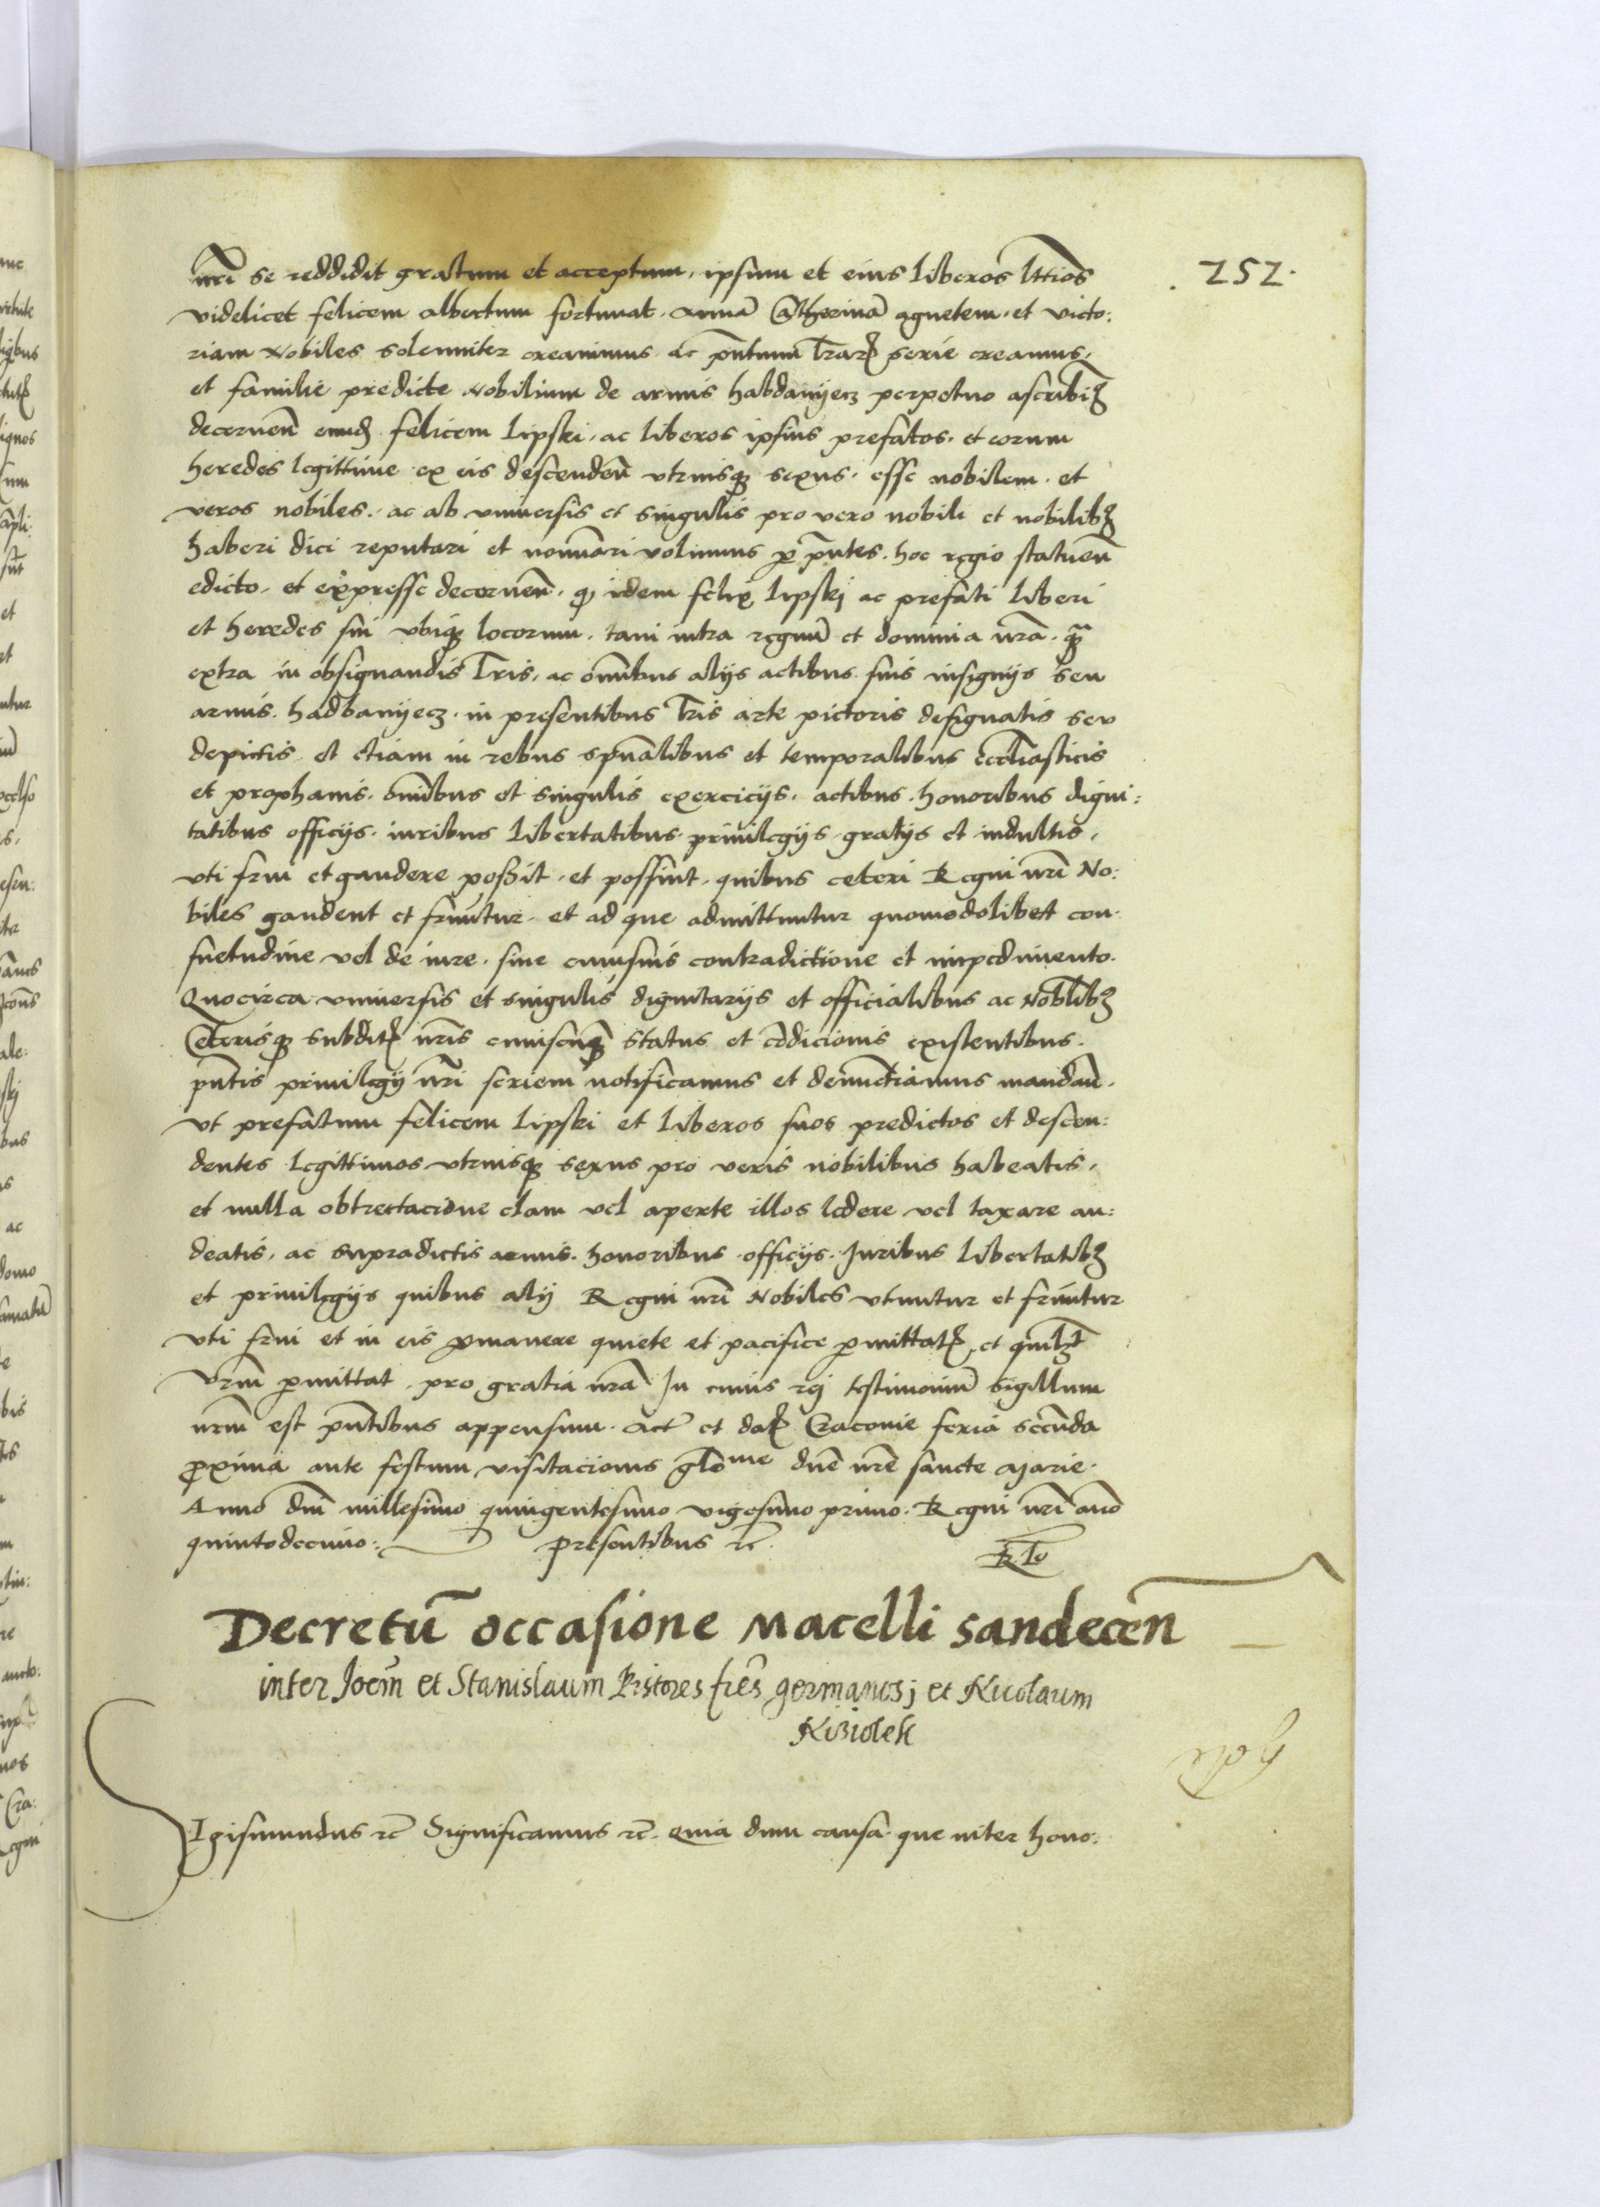 252.
nr̄i se reddidit gratum et acceptum, ipsum et eius liberos lttīos
videlicet felicem albertum fortunat. annā Catherinā agnetem. et victo:
riam Nobiles solenniter creavimus. ac pn̄tium lrarꝝ serie creamus,
et familie predicte Nobilium de armis habdanyecz perpetuo ascribimꝰ
decernen̄ eundē felicem Lipski, ac liberos ipsius prefatos. et eorum
heredes legittime ex eis descenden̄ utriusqꝫ sexus. esse nobilem. et
veros nobiles. ac ab universis et singulis pro vero nobili et nobilibꝫ
haberi dici reputari et nominari volumus ꝑ pn̄tes. hoc regio statuen̄
edicto. et expresse decernen̄. ꝙ idem felix Lipskj ac prefati liberi
et heredes sui ubiqꝫ locorum. tam intra regnū et dominia nr̄a. qꝫ̄
extra in obsignandis lr̄is, ac om̄ibus alijs actibus suis insignijs seu
armis. hadbanyecz. in presentibus lr̄is arte pictoris designatis seu
depictis et etiam in rebus spūalibus et temporalibus eccl̄iasticis
et prophanis. om̄ibus et singulis exercicijs. actibus. honoribus digni:
tatibus officijs. iuribus libertatibus. privilegijs gratijs et indultis,
uti frui et gaudere possit. et possint. quibus ceteri Regni nr̄i No:
biles gaudent et fruūtur. et ad que admittuntur quomodolibet con
suetudine vel de iure. sine cuiusvis contradictione et impedimento.
Quocirca universis et singulis dignitarijs et officialibus ac Nobilibꝫ
Ceterisqꝫ subditꝭ nr̄is cuiuscunqꝫ status et cōdicionis existentibus.
pn̄tis privilegij nr̄i seriem notificamus et denunctiamus mandan̄.
ut prefatum felicem Lipski et liberos suos predictos et descen:
dentes legittimos utriusqꝫ sexus pro veris nobilibus habeatis,
et nulla obtrectacione clam vel aperte illos ledere vel taxare au:
deatis, ac supradictis armis. honoribus. officijs. Juribus libertatibꝫ
et privilegijs quibus alij Regni nr̄i Nobiles utuntur et fruūtur
uti frui et in eis ꝑmanere quiete et pacifice ꝑmittatꝭ, et quilꝫt
vr̄m ꝑmittat. pro gratia nr̄a. In cuius rej testimoniū sigillum
nr̄m est pn̄tibus appensum. Act̄ et datꝭ Cracovie feria secūda
ꝓxima ante festum visitacionis gl̄o me dn̄e nr̄e sancte Marie.
Anno dn̄i millesimo quingentesimo vigesimo primo. Regni nr̄i an̄o
quintodecimo: presentibus ⁊c̄.
Decretū occasione Macelli sandecen̄
inter Joen̄m et Stanislaum Pistores fr̄es germanos; et Nicolaum
Kisiolek
Sigismundus ⁊c̄ Significamus ⁊c̄. quia dum causa. que inter hono: